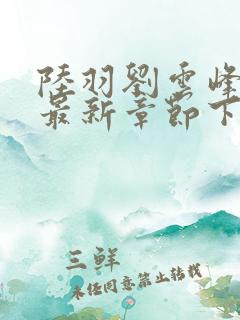 陸羽劉雲峰
最新章節下
三鮮
未經同意禁止轉載